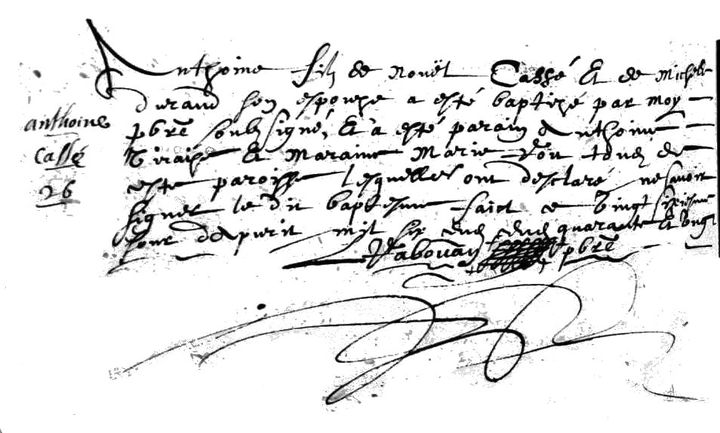 Anthoine filz de Nouël Cassé et de Michelle
durand son espouze a esté baptizé par moy
anthoine
Cassé
26
pbre soubz signé, et a esté parain Anthoine
et Maraine Marie tous de
ceste paroisse lesquelles ont desclaré ne savoir
signer le dit baptesme faict ce vingt sixiesme
jour d'apvril mil six cens quarante et ung
pbre